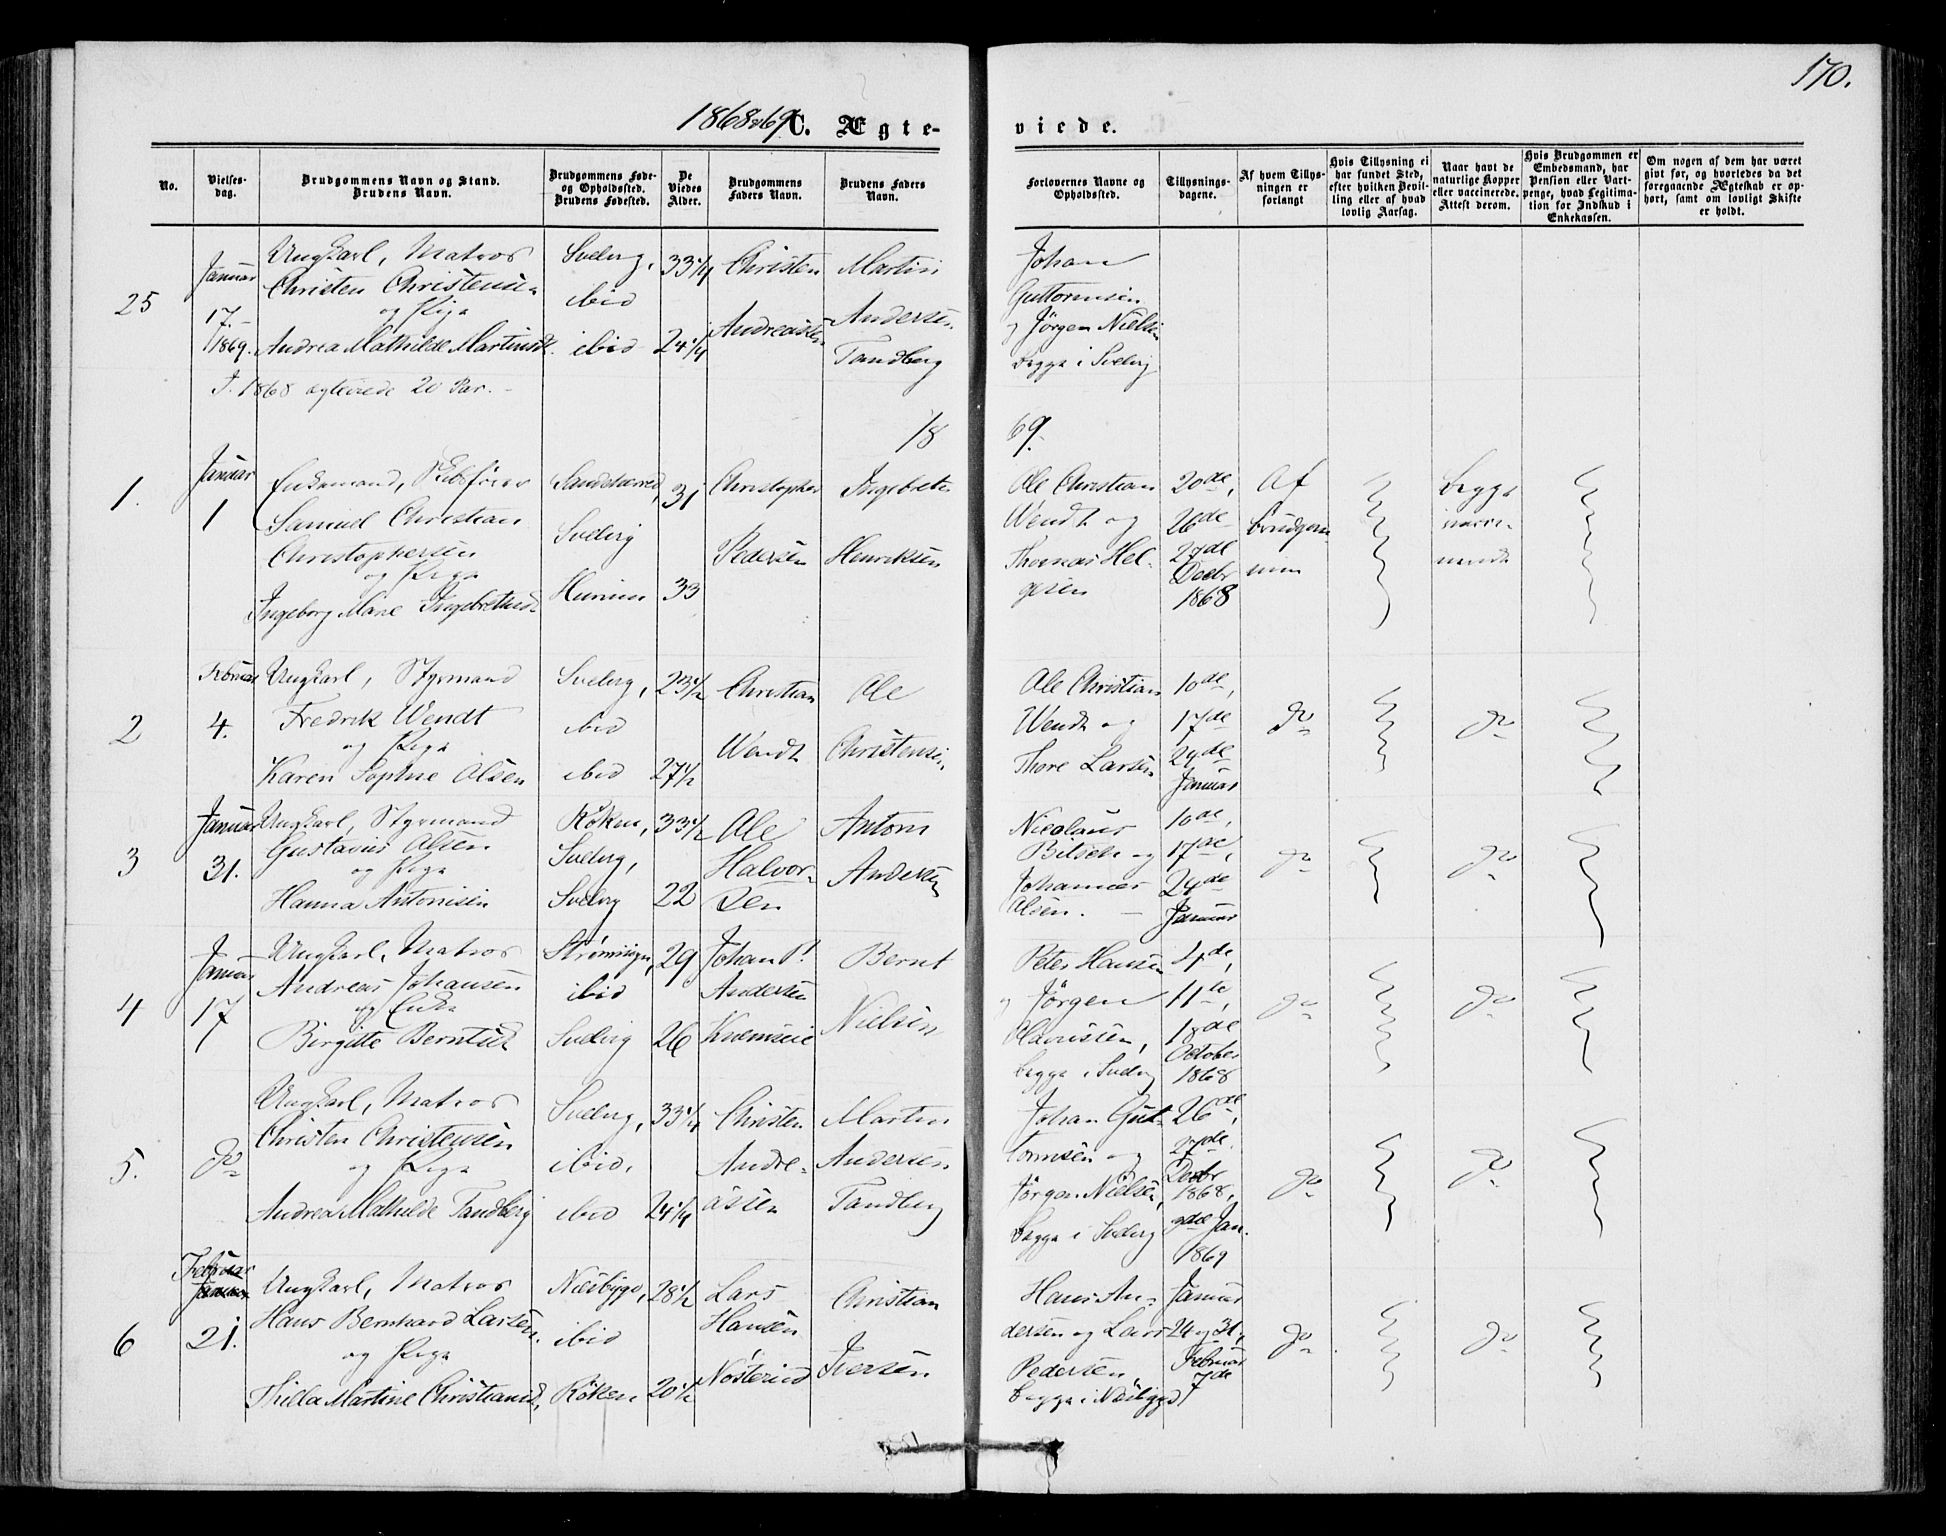 170.
1868 og 69 C. Ægte-
viede.
No.
Vielses-
dag.
Brudgommens Navn og Stand.
Brudens Navn.
Brudgommens Føde-
og Opholdssted.
Brudens Fødested.
De
Viedes
Alder.
Brudgommens
Faders Navn.
Brudens Faders
Navn.
Forlovernes Navne og
Opholdssted.
Tillysnings-
dagene.
Af hvem Tillys-
ningen er
forlangt
Hvis Tillysning ei
har fundet Sted,
efter hvilken Bevil-
ling eller af hvad
lovlig Aarsag.
Naar havt de
naturlige Kopper
eller vaccinerede.
Attest derom.
Hvis Brudgommen er
Embedsmand, har
Pension eller Vart-
penge, hvad Legitima-
tion for Indskud i
Enkekassen.
Om nogen af dem har været
givt før, og hvorledes da det
foregaaende Ægteskab er op-
hørt, samt om lovligt Skifte
er holdt.
25
Januar
17.
1869.
Ungkarl, Matros
Christen Christensen
og Piga
Andrea Mathilde Martinsd.
Svelvig,
ibid
ibid
33 1/4
24 1/4
Christen
Andreassen
Martin
Andersen
Tandberg
Johan
Guttormsen
og Jörgen Nielsen
begge i Svelvig
I 1868 ægteviede 20 Par.
18
69.
1.
Januar
1
Enkemand, Skibsfører
Samuel Christian
Christophersen
og Piga
Ingeborg Marie Ingebretsd.
Svelvig
Hurum
31
33
Christopher
Pedersen
Ingebret
Henriksen
Ole Christian
Wendt og
Thomas Hel-
gesen
20de,
26de
27de
Decbr
1868
Af
Brudgom
men
begge
2
Februar
4.
Ungkarl, Styrmand
Fredrik Wendt
og Piga
Karen Sophie Olsen
Svelvig,
ibid
ibid
23 1/2
27 1/2
Christian
Wendt
Ole
Christensen
Ole Christian
Wendt og
Thore Larsen
10de,
17de
24de
Januar
Do
Do
3
Januar
31.
Ungkarl, Styrmand
Gustavus Olsen
og Piga
Hanna Antonisen
Röken,
Svelvig,
Svelvig
33 1/2
22
Ole
Halvor-
sen
Anton
Andersen
Nicolaus
Bilsch og
Johannes
Olsen.
10de,
17de,
24de
Januar
Do
Do
4
Januar
17
Ungkarl, Matros
Andreas Johansen
og Enke
Birgitte Berntsd
ibid
Svelvig
29
26
Johan P.
Andersen
Bernt
Nielsen
Peter Hansen
og Jörgen
begge i Svelvig
4de,
11te,
18de
October
1868
Do
Do
5.
Do
Ungkarl, Matros
Christen Christensen
og Piga
Andrea Mathilde Tandberg
Svelvig,
ibid,
ibid
33 1/4
24 1/4
Christen
Andre-
assen
Martin
Andersen
Tandberg
Johan Gut-
tormsen og
Jörgen Nielsen,
begge i Svelvig
26de,
27de
Decbr
1868,
3die Jan.
1869
Do
Do
6
Februar
21.
Ungkarl, Matros
Hans Bernhard Larsen.
og Piga
Thilla Martine Christiansd,
Næsbygd,
ibid
Röken
28 1/2
20 1/2
Lars
Hansen
Christian
Iversen
Hans An-
dersen og Lars
Pedersen,
begge i Næsbygd
Januar
24 og 31,
Februar
7de
Do
Do